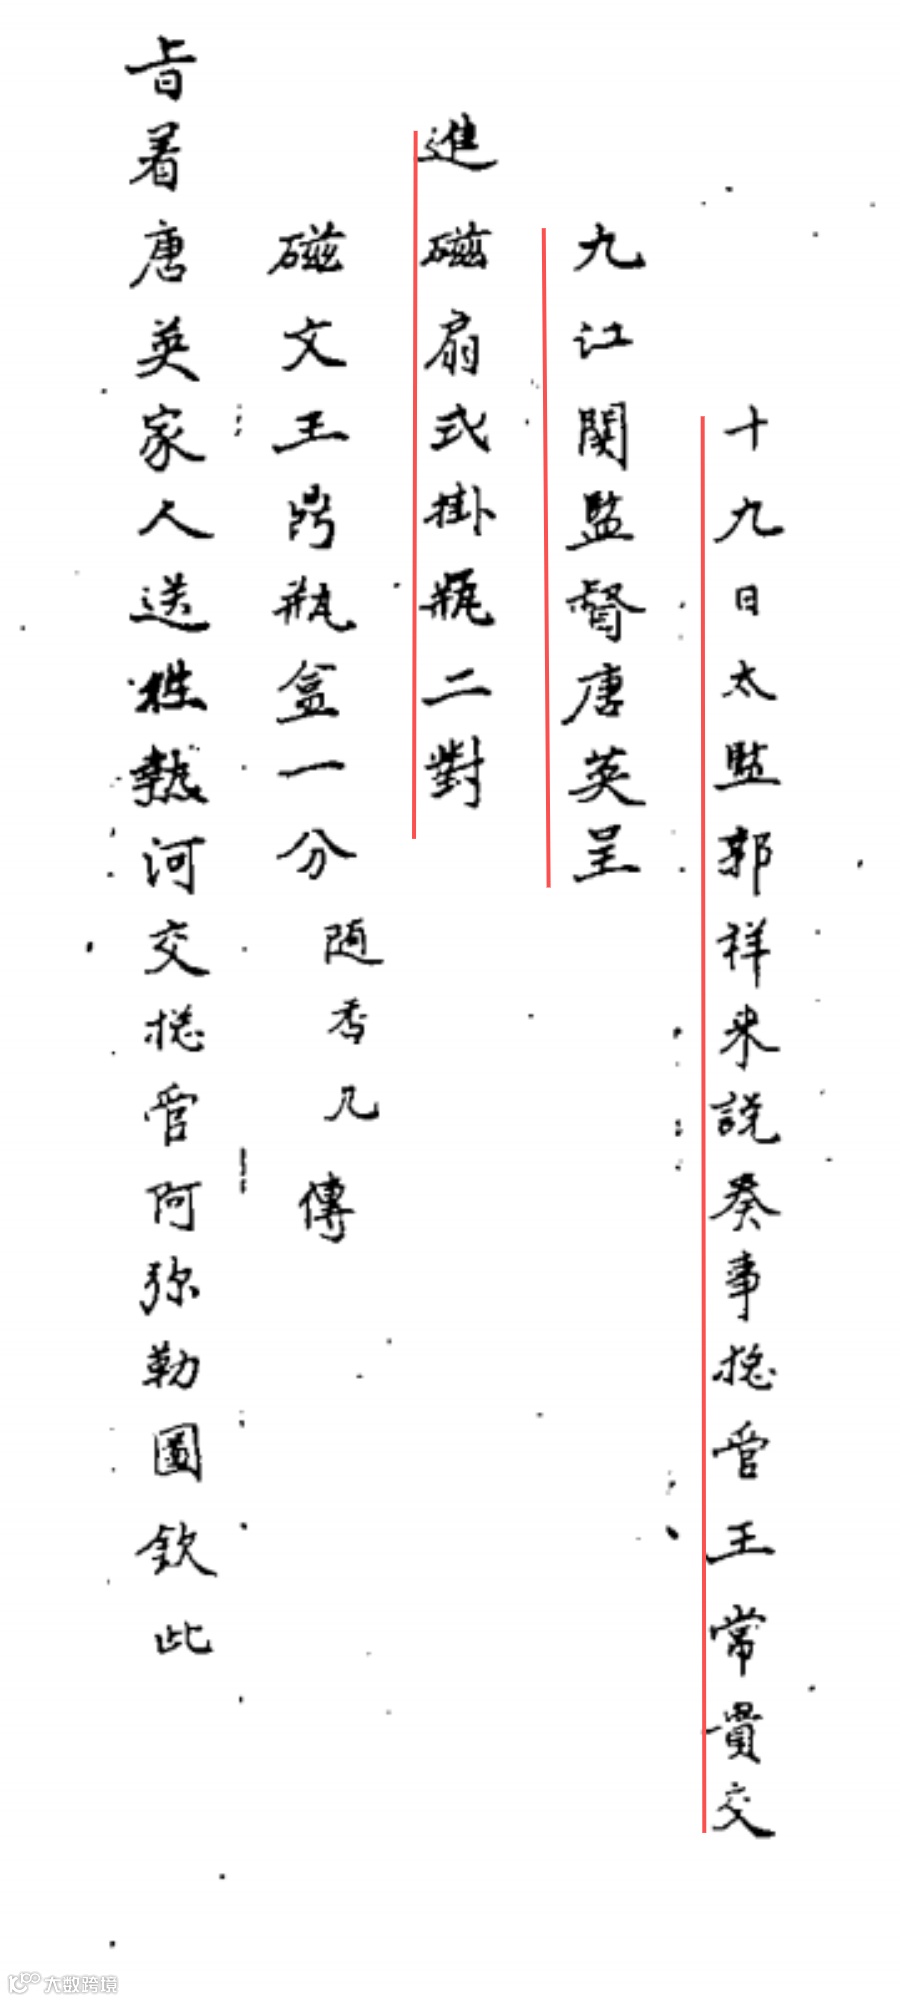 十九日太監郭祥来説奏事捴管王常貴交
九江関監督唐英呈
進磁扇式掛瓶二對
磁文王鼎瓶盒一分随香几傳
旨着唐英家人送往熱河交捴管阿弥勒圖欽此
大数跨境